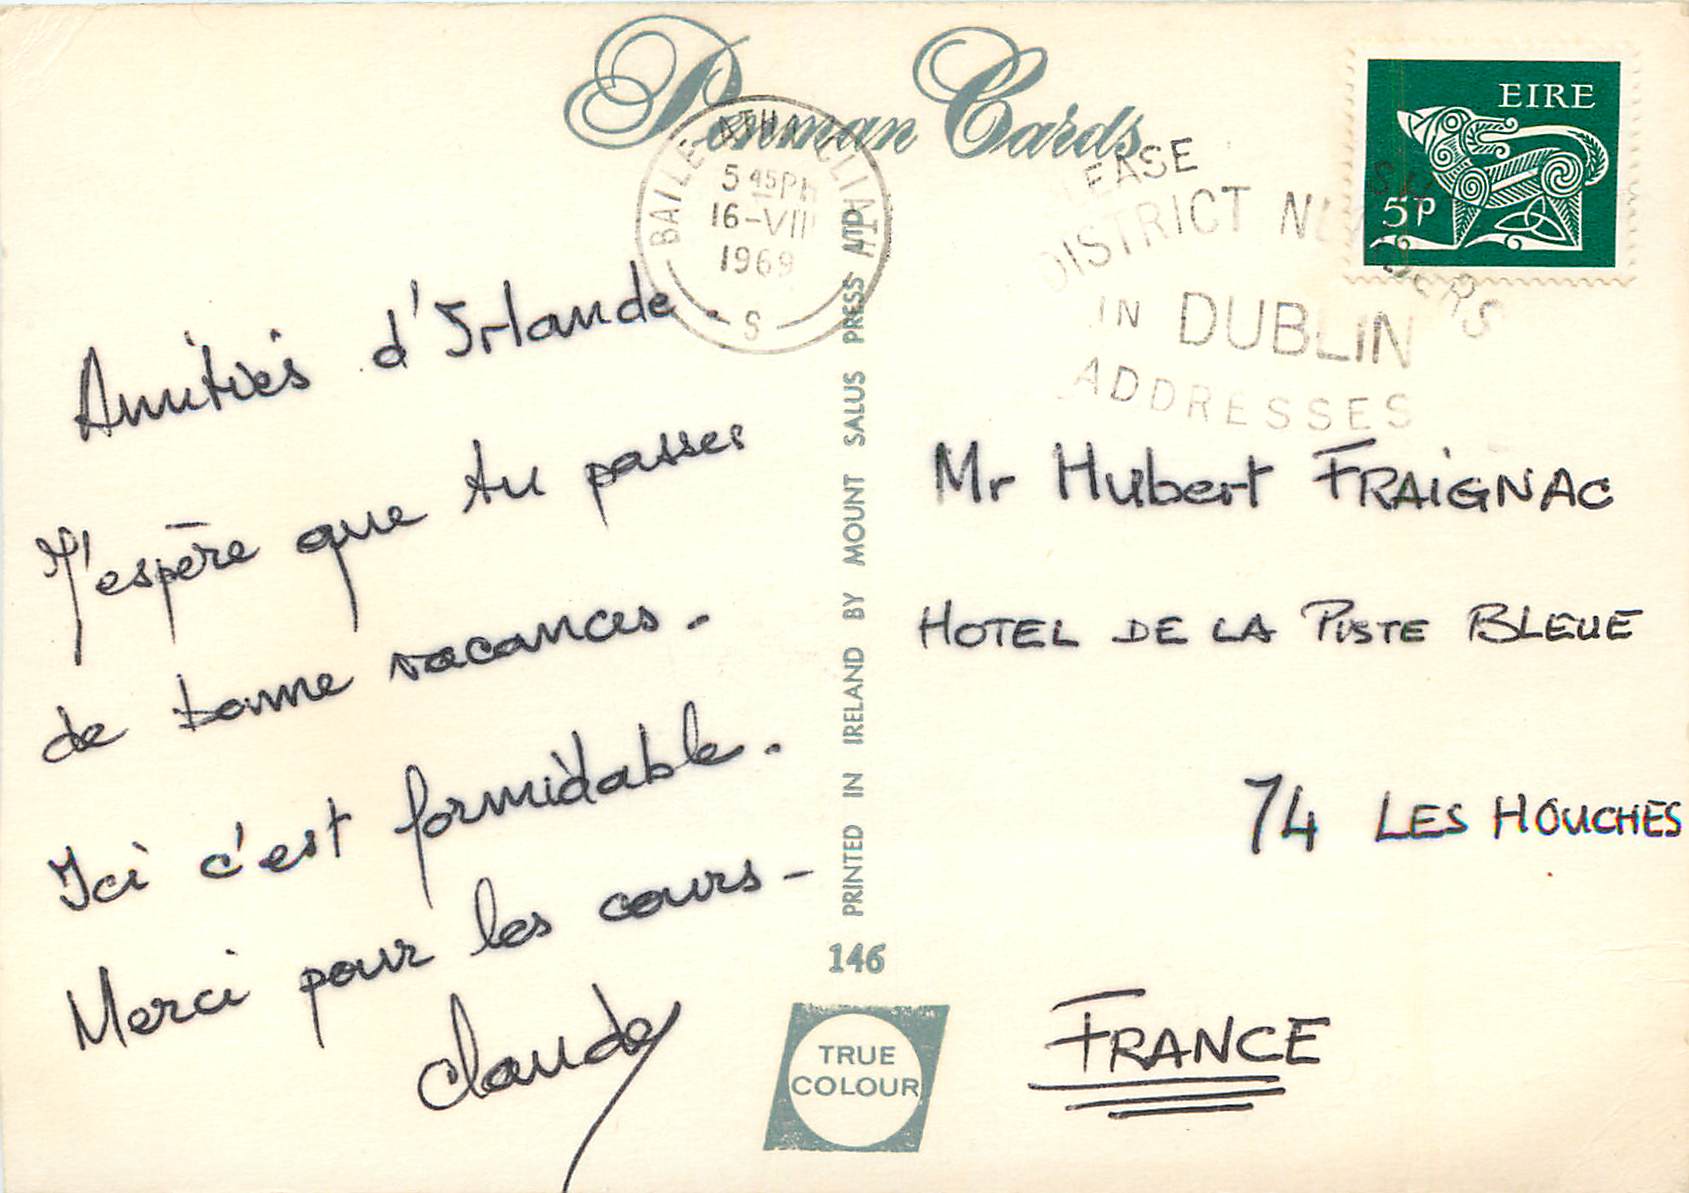 Penman Cards
BAILE ATHA CLIATH
5 45PM
16-VIII
1969
S
PLEASE
DISTRICT NUMBERS
IN DUBLIN
ADDRESSES
EIRE
5p
Amitiés d'Irlande.
J'espère que tu passes
de bonne vacances.
Ici c'est formidable.
Merci pour les cours -
Claude
PRINTED IN IRELAND BY MOUNT SALUS PRESS LTD.
146
TRUE
COLOUR
Mr Hubert FRAIGNAC
HOTEL DE LA PISTE BLEUE
74 LES HOUCHES
FRANCE